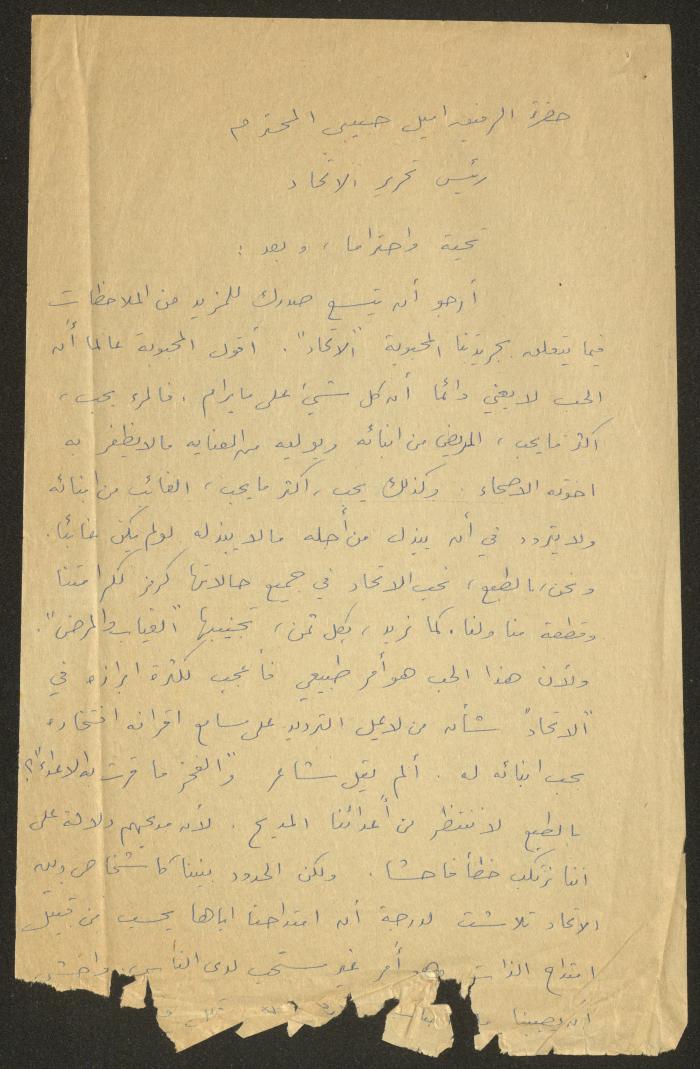 حضرة الرفيق اميل حبيبي المحترم
رئيس تحرير الاتحاد
تحية واحتراما، وبعد :
أرجو أن يتسع صدرك للمزيد من الملاحظات
فيما يتعلق بجريدتنا المحبوبة "الاتحاد". أقول المحبوبة عالما أن
الحب لا يعني دائما أن كل شيئ على ما يرام. فالمرء يحب،
اكثر ما يحب، المريض من ابنائه ويوليه من العنايه مالا يظفر به
اخوته الاصحاء. وكذلك يحب، اكثر ما يحب، الغائب من ابنائه
ولا يتردد في أن يبذل من أجله مالا يبذله لو لم يكن غائبا.
ونحن، بالطبع، نحب الاتحاد في جميع حالاتها كرمز لكرامتنا
وقطعة منا ولنا. كما نريد، بكل ثمن، تجنيبها "الغياب والمرض".
ولأن هذا الحب هو أمر طبيعي فأعجب لكثرة ابرازه في
"الاتحاد" شأن من لا يمل الترديد على مسامع اقرانه افتخاره
بحب ابنائه له. ألم يقل شاعر "والفخر ما قرت به الاعداء"؟
بالطبع لا ننتظر من أعدائنا المديح. لأن مديحهم دلالة على
اننا نرتكب خطأ فاحشا. ولكن الحدود بيننا كاشخاص وبين
الاتحاد تلاشت لدرجة أن امتداحنا اياها يحسب من قبيل
امتداح الذات وهو أمر غير مستحب لدى الناس. واخشى
أن يصيبنا